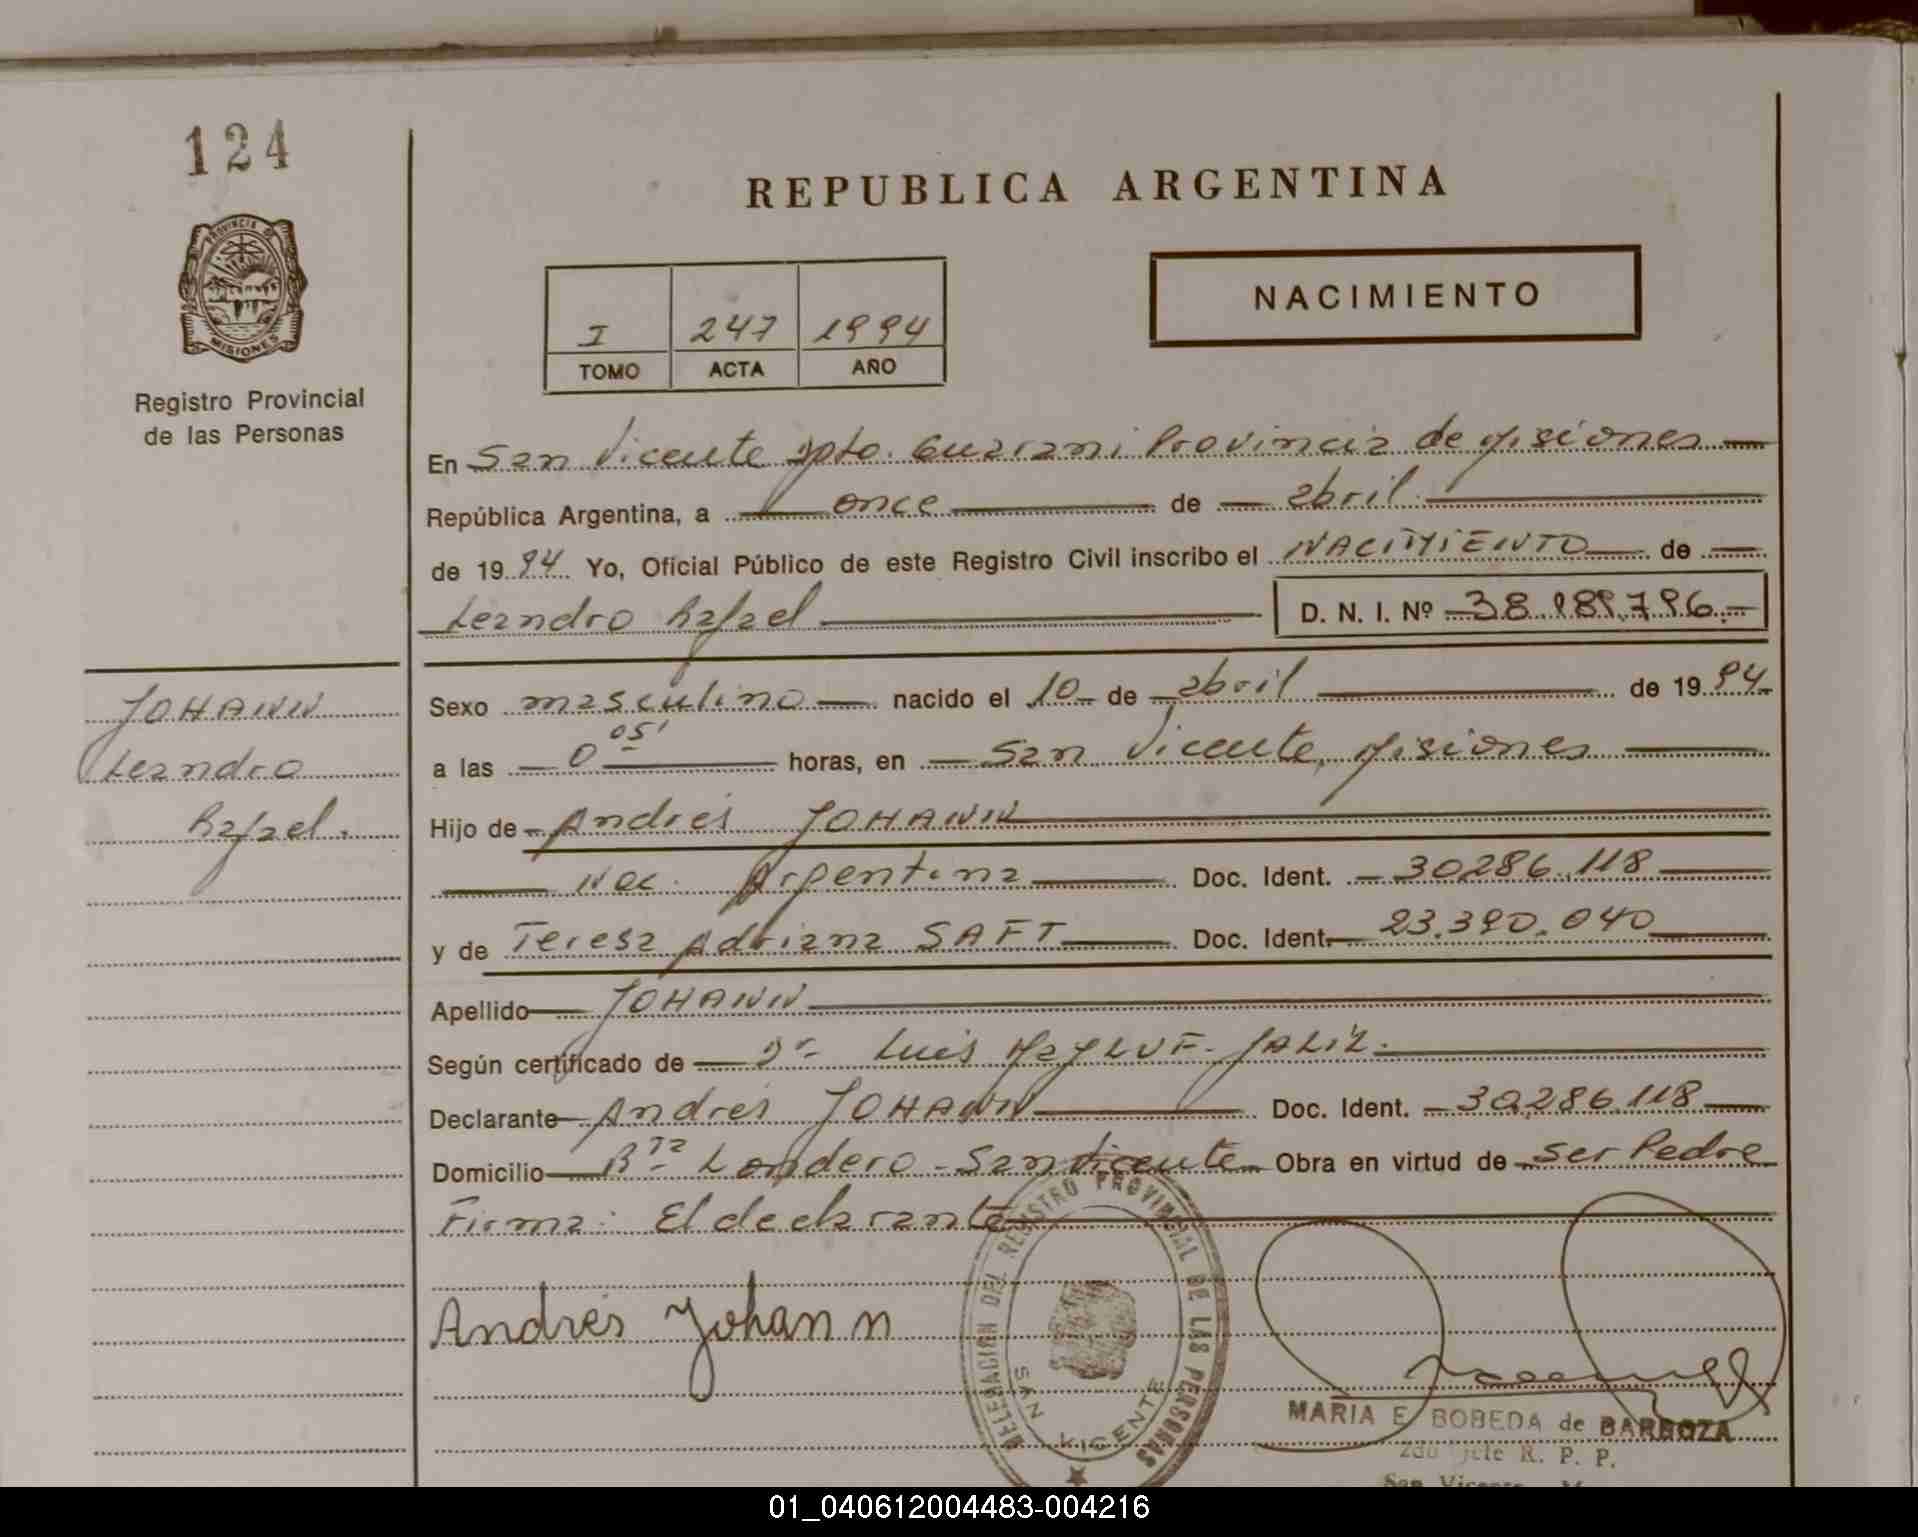 124
REPUBLICA ARGENTINA
PROVINCIA DE
MISIONES
Registro Provincial
de las Personas
NACIMIENTO
I 247 1994
TOMO ACTA AÑO
En San Vicente Dpto. Guarani Provincia de Misiones
República Argentina, a once de abril
de 1994 Yo, Oficial Público de este Registro Civil inscribo el NACIMIENTO de
Leandro Rafael D. N. I. Nº 38.189.796.-
JOHANN
Leandro
Rafael.
Sexo masculino nacido el 10 de abril de 1994
a las 0 05' horas, en San Vicente, Misiones
Hijo de Andrés JOHANN
Nac. Argentina Doc. Ident. 30286.118
y de Teresa Adriana SAFT Doc. Ident. 23.390.040
Apellido JOHANN
Según certificado de Dr. Luis
Declarante Andrés JOHANN Doc. Ident. 30.286.118
Domicilio Bta Londero - San Vicente Obra en virtud de ser Padre
Firma: El declarante
Andrés Johann
DELEGACION DEL REGISTRO PROVINCIAL DE LAS PERSONAS
SAN VICENTE
MARIA E. BOBEDA de BARBOZA
2do Jefe R. P. P.
San Vicente
01_040612004483-004216